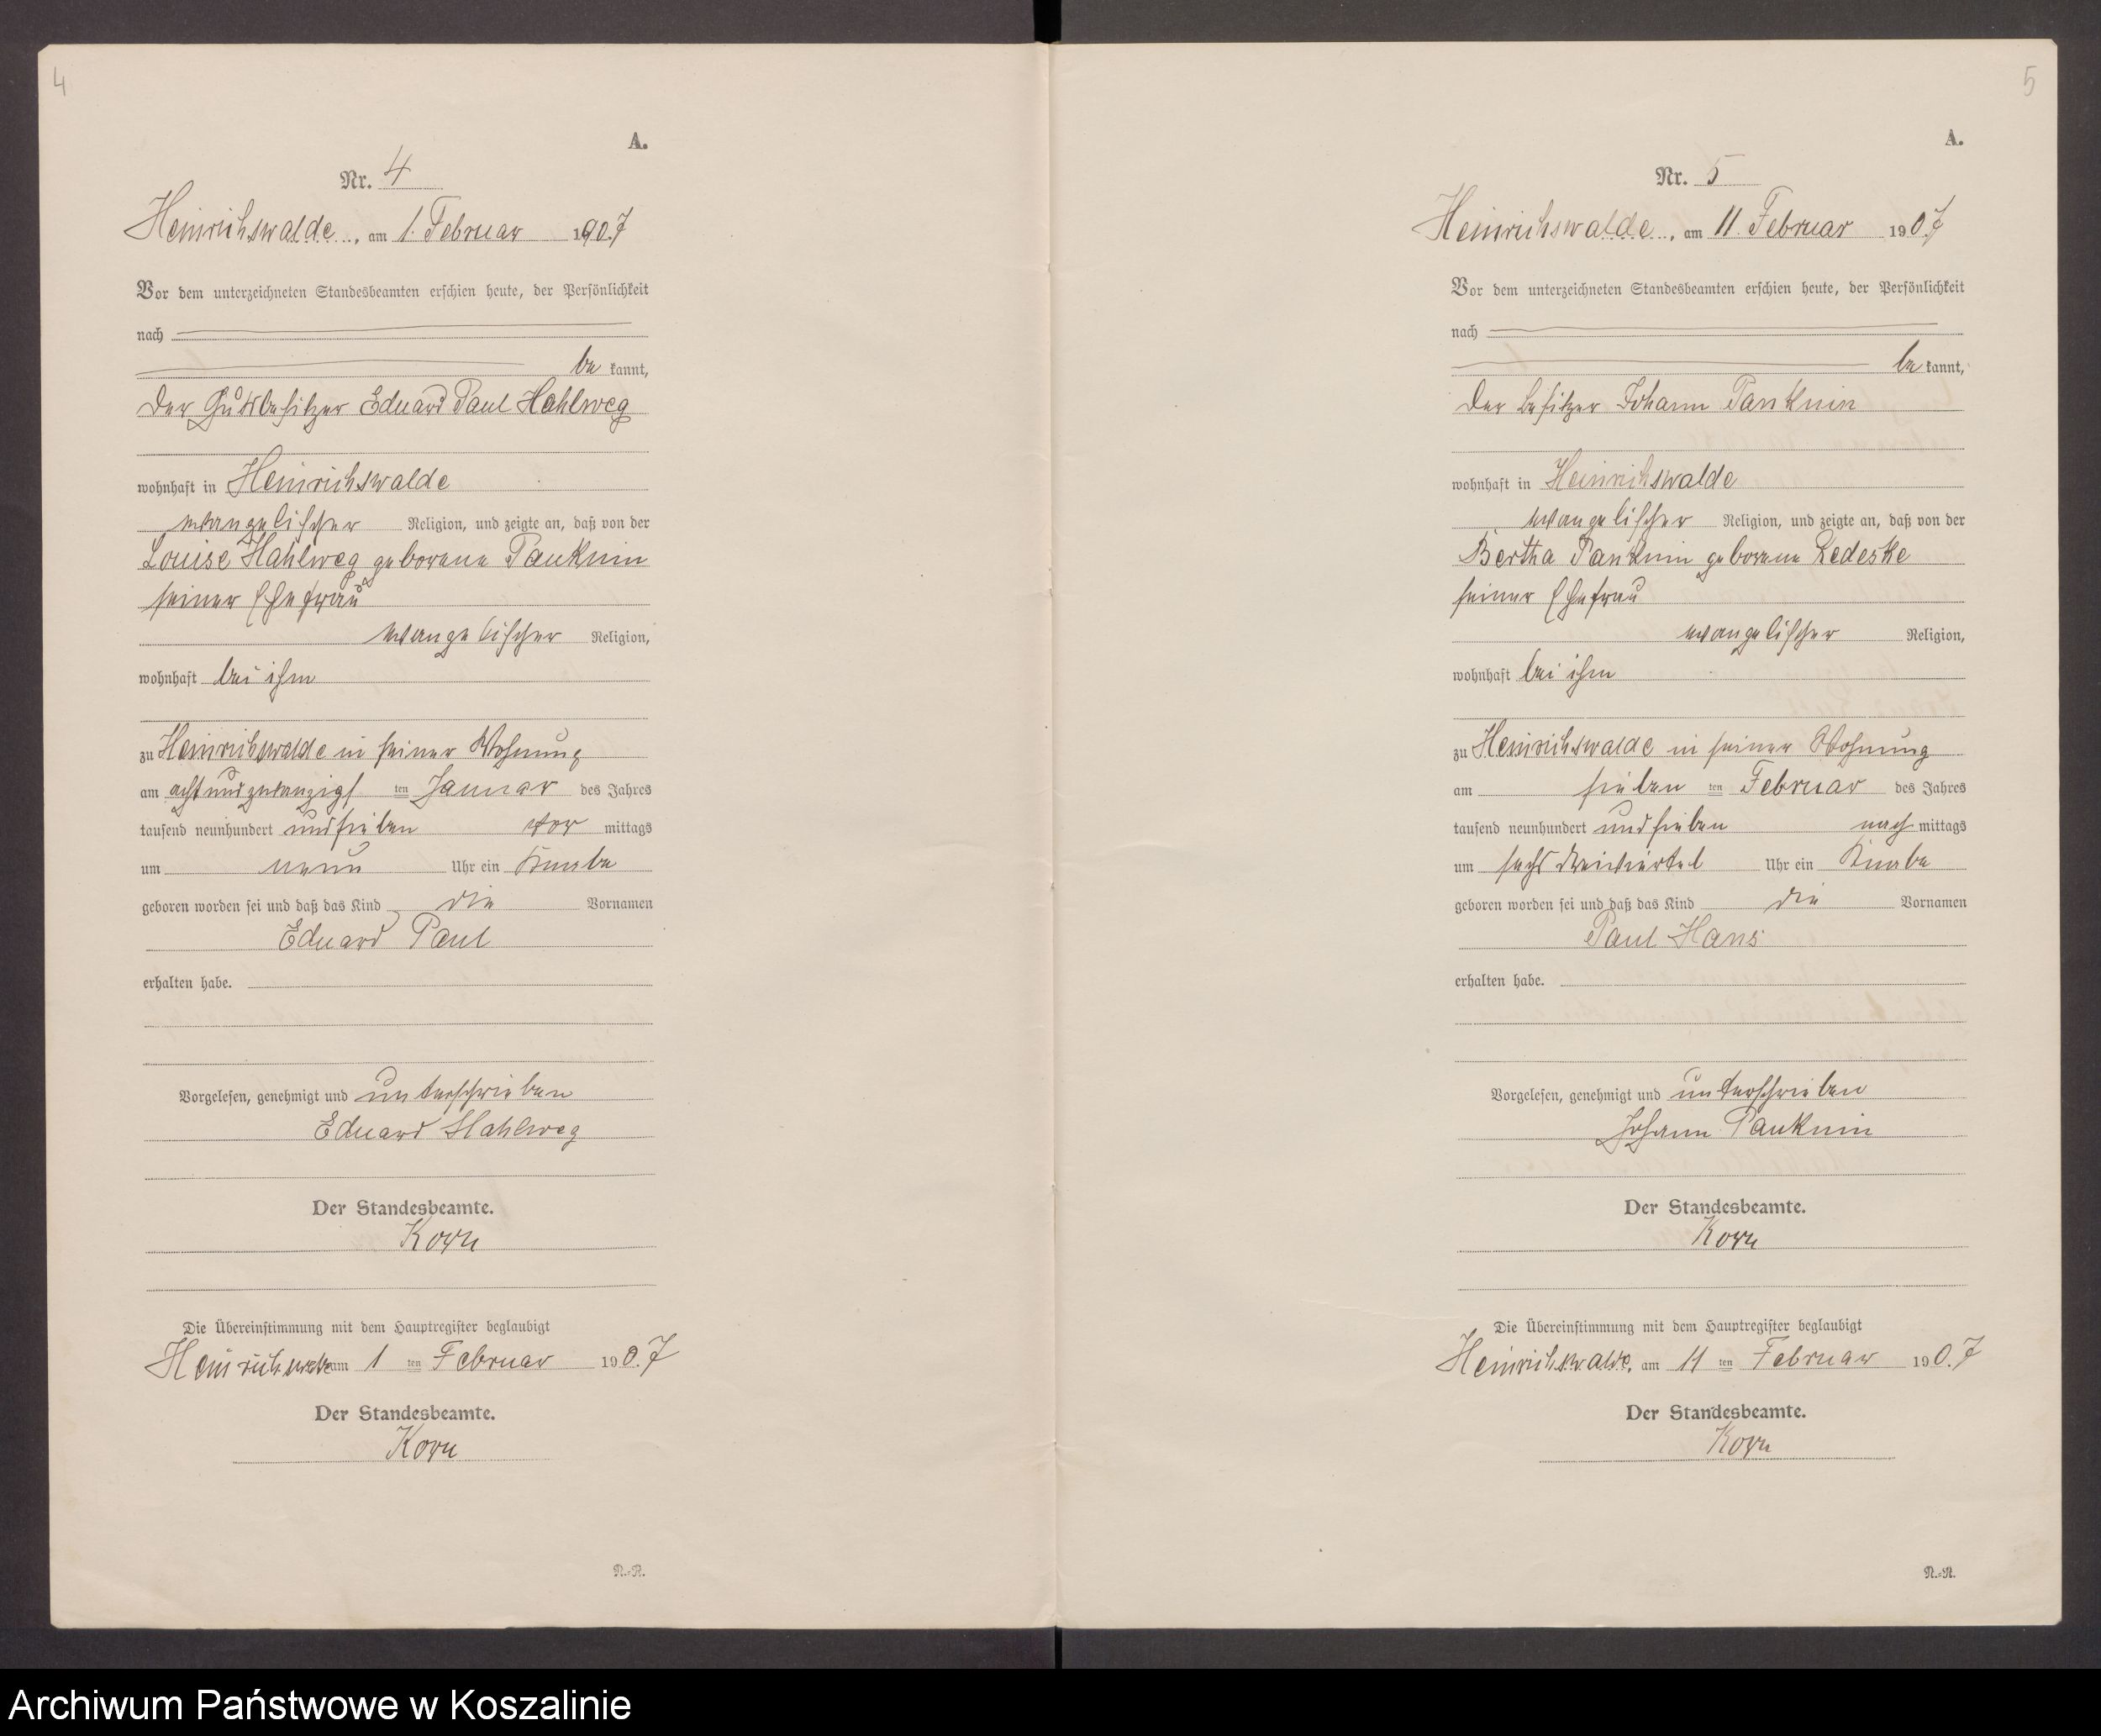 4
A.
Nr. 4
Heinrichswalde, am 1. Februar 1907
Vor dem unterzeichneten Standesbeamten erschien heute, der Persönlichkeit
nach
be kannt,
der Gutsbesitzer Eduard Paul Hahlweg
wohnhaft in Heinrichswalde
evangelischer Religion, und zeigte an, daß von der
Louise Hahlweg geborene Pauknin
seiner Ehefrau
evangelischer Religion,
wohnhaft bei ihm
zu Heinrichswalde in seiner Wohnung
am achtundzwanzigsten Januar des Jahres
tausend neunhundert und sieben vor mittags
um neun Uhr ein Knabe
geboren worden sei und daß das Kind die Vornamen
Eduard Paul
erhalten habe.
Vorgelesen, genehmigt und unterschrieben
Eduard Hahlweg
Der Standesbeamte.
Korn
Die Übereinstimmung mit dem Hauptregister beglaubigt
Heinrichswalde am 1 ten Februar 190.7
Der Standesbeamte.
Korn
N.-R.
5
A.
Nr. 5
Heinrichswalde, am 11. Februar 1907
Vor dem unterzeichneten Standesbeamten erschien heute, der Persönlichkeit
nach
be kannt,
der Besitzer Johann Pauknin
wohnhaft in Heinrichswalde
evangelischer Religion, und zeigte an, daß von der
Bertha Pauknin geborene Redeske
seiner Ehefrau
evangelischer Religion,
wohnhaft bei ihm
zu Heinrichswalde in seiner Wohnung
am sieben ten Februar des Jahres
tausend neunhundert und sieben nach mittags
um sechs dreiviertel Uhr ein Knabe
geboren worden sei und daß das Kind die Vornamen
Paul Hans
erhalten habe.
Vorgelesen, genehmigt und unterschrieben
Johann Pauknin
Der Standesbeamte.
Korn
Die Übereinstimmung mit dem Hauptregister beglaubigt
Heinrichswalde, am 11 ten Februar 190.7
Der Standesbeamte.
Korn
N.-R.
Archiwum Państwowe w Koszalinie